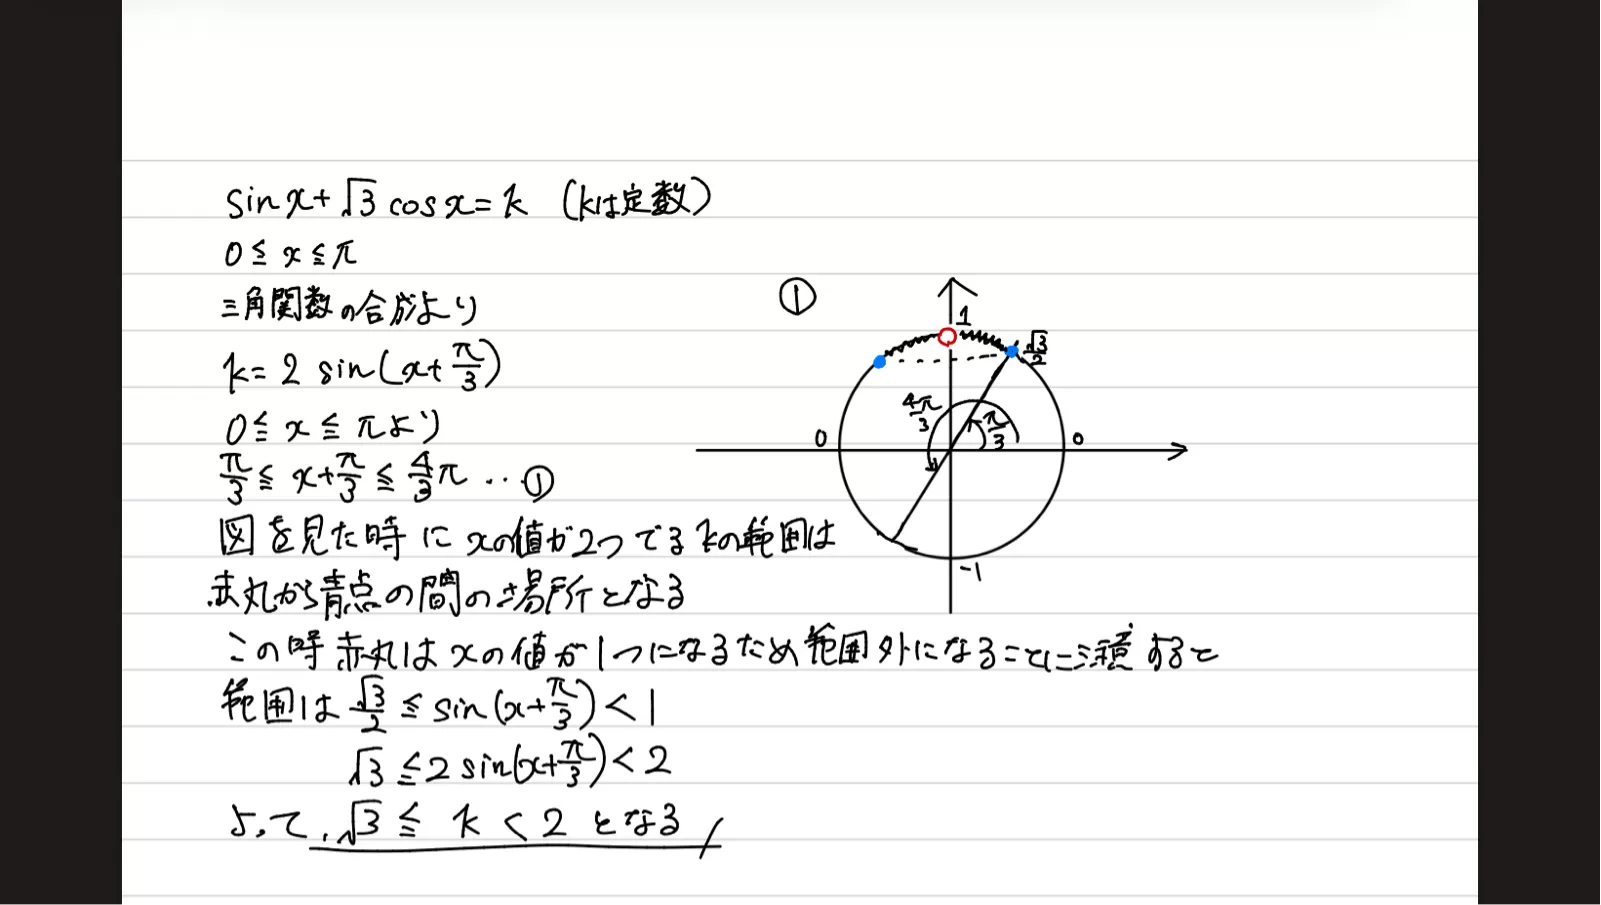 sinx+√3 cosx=k (kは定数)
0≦x≦π
三角関数の合成より
k=2 sin(x+π/3)
0≦x≦πより
π/3≦x+π/3≦4/3π …①
図を見た時にxの値が2つでるkの範囲は
赤丸から青点の間の場所となる
この時赤丸はxの値が1つになるため範囲外になることに注意すると
範囲は √3/2≦sin(x+π/3)<1
√3≦2sin(x+π/3)<2
よって、√3≦k<2となる
①
1
√3/2
4π/3
π/3
0
0
-1